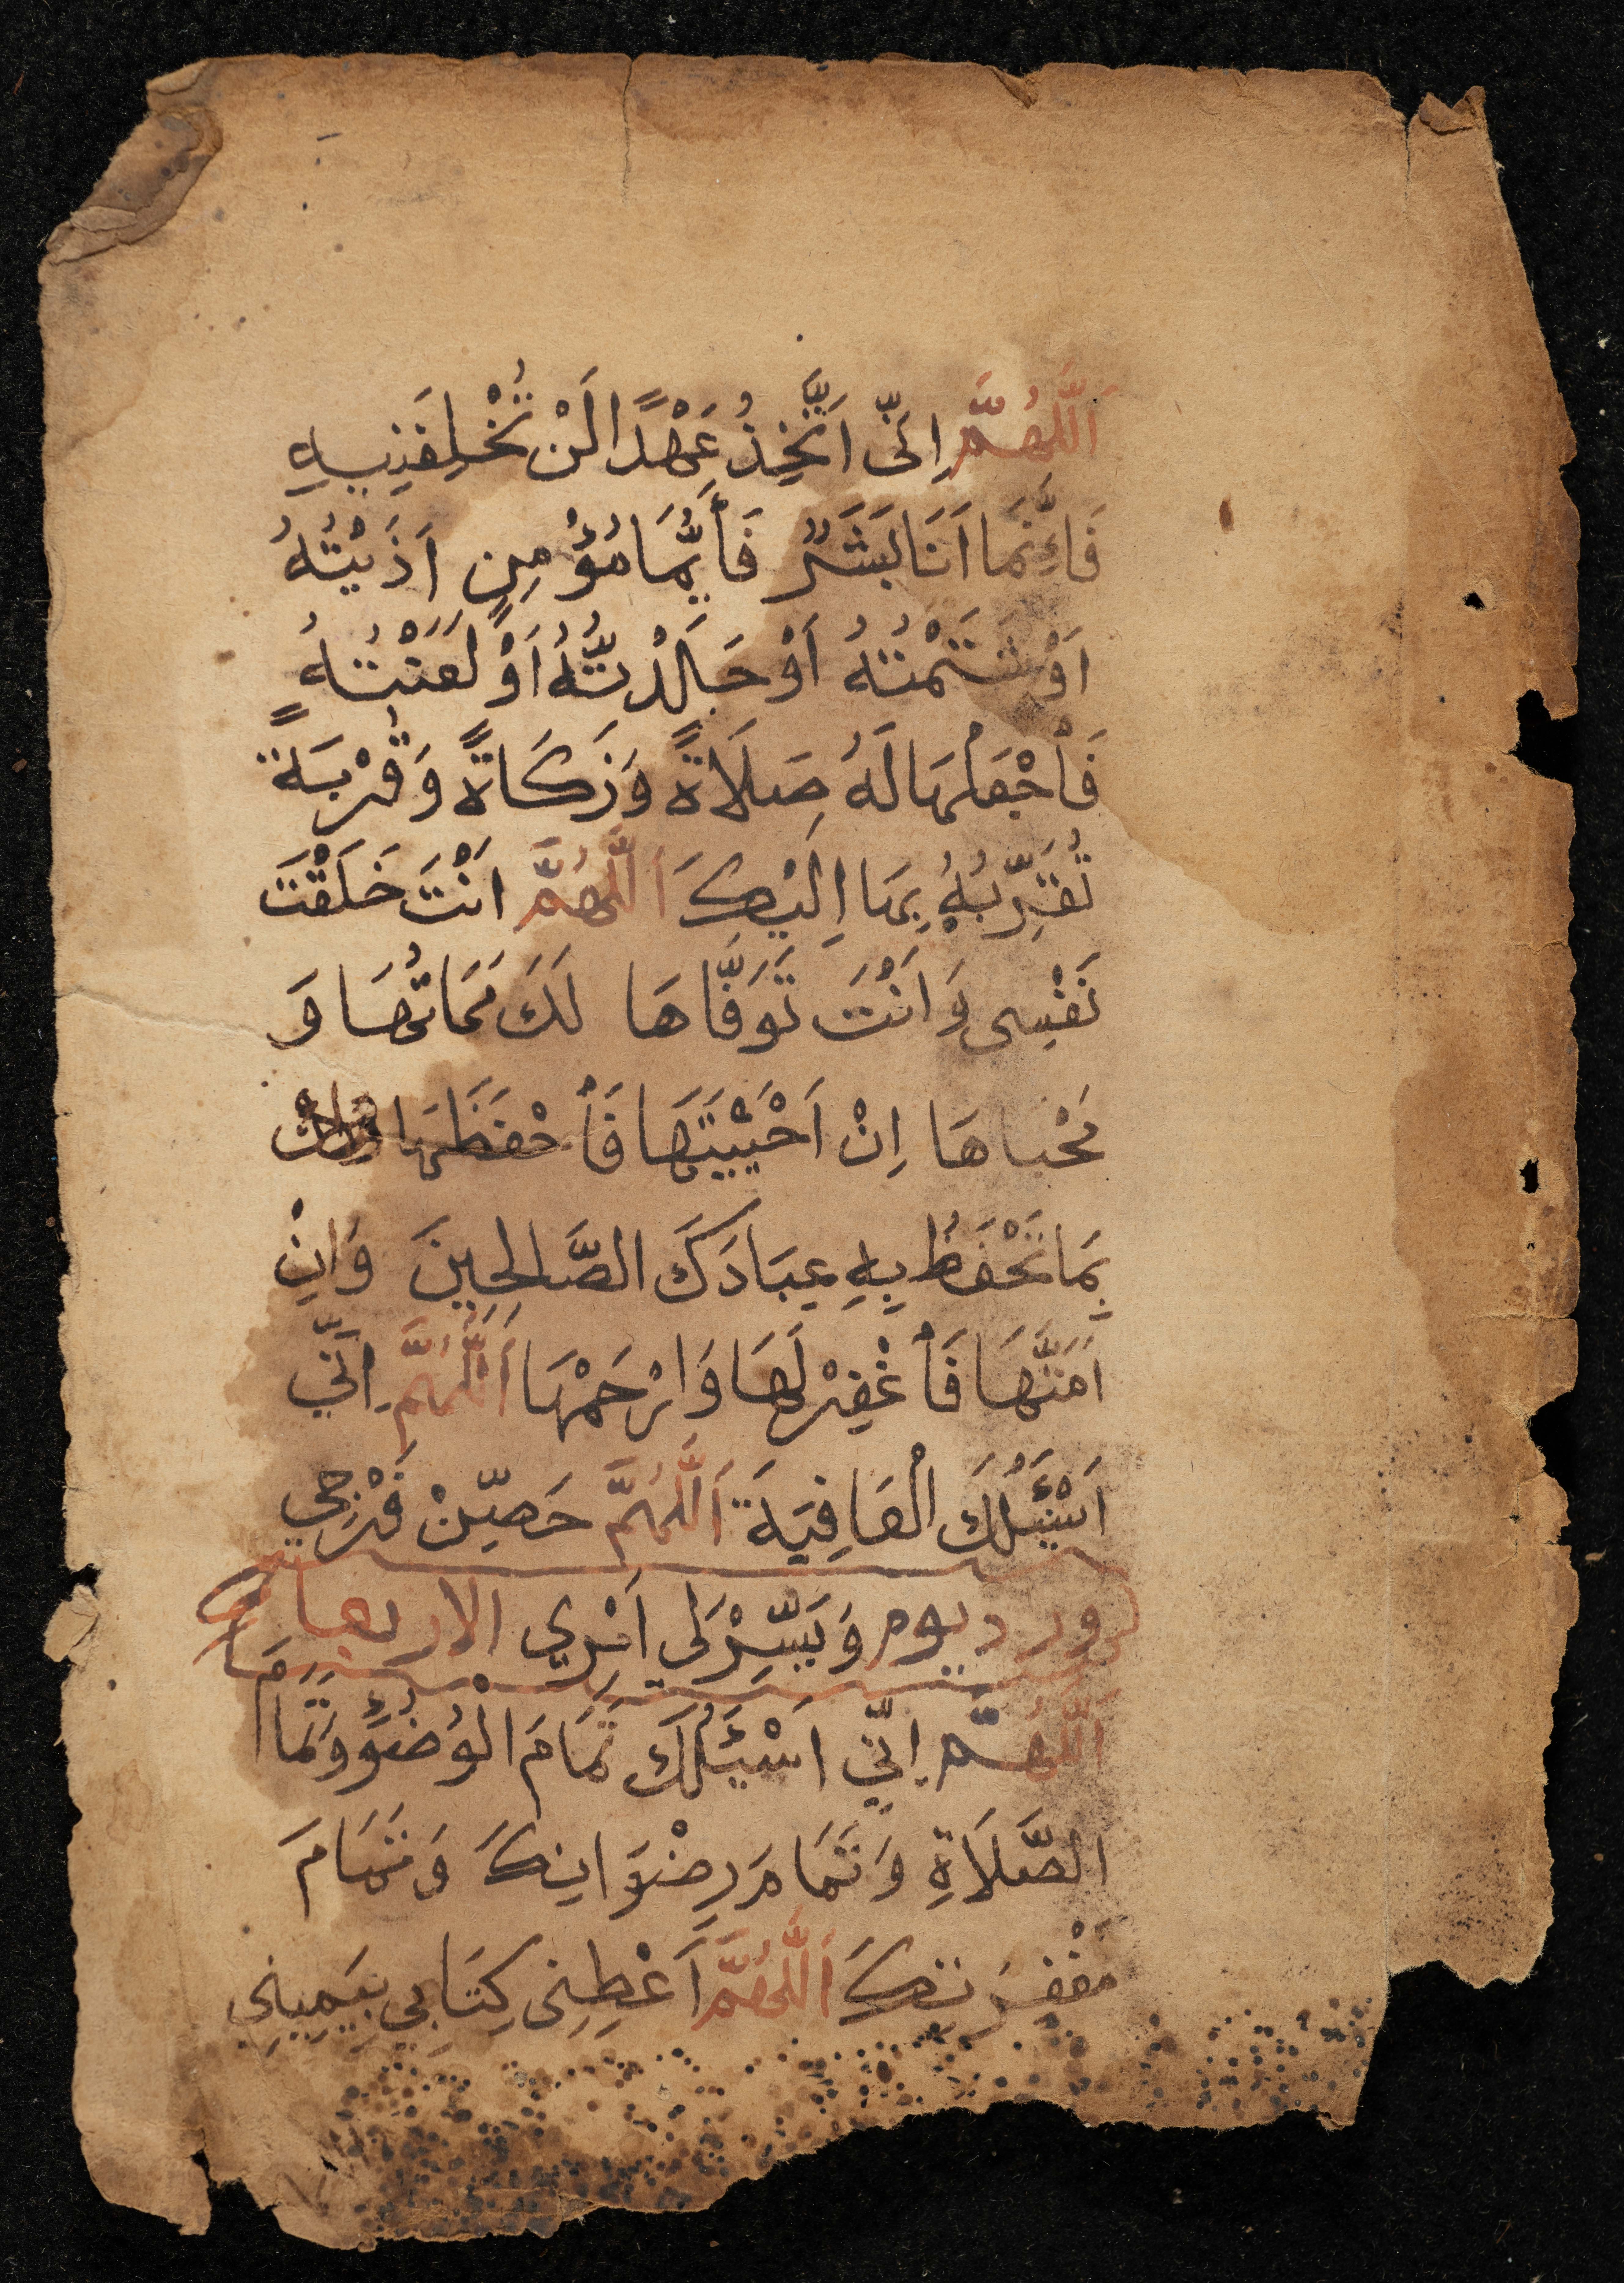 اَللّٰهُمَّ اِنّىِ اَتَّخِذُ عَهْدًا لَنْ تُخْلِفَنِيهِ
فَاِنَّمَا اَنَا بَشَرٌ فَأَيُّمَا مُؤْمِنٍ اَذَيْتُهُ
اَوْ شَتَمْتُهُ اَوْ جَالَدْتُّهُ اَوْ لَعَنْتُهُ
فَاْجْعَلْهَا لَهُ صَلَاةً وَزَكَاةً وَقُرْبَةً
تُقَرِّبُهُ بِهَا اِلَيْكَ اَللّٰهُمَّ اَنْتَ خَلَقْتَ
نَفْسِى وَاَنْتَ تَوَفَّاهَا لَكَ مَمَاتُهَا وَ
مَحْياهَا اِنْ اَحْيَيْتَهَا فَاْحْفَظْهَا
بِمَا تَحْفَظُ بِهِ عِبَادَكَ الصَّالِحِينَ وَاِنْ
اَمَتَّهَا فَاْغْفِرْ لَهَا وَارْحَمْهَا اَللّٰهُمَّ اِنّىِ
اَسْئَلُكَ الْعَافِيَةَ اَللّٰهُمَّ حَصِّنْ فَرْجِي
ورد يوم وَيَسِّرْ لِى اَمْرِي الاربعا
اَللّٰهُمَّ اِنّىِ اَسْئَلُكَ تَمَامَ الْوُضُوءِ وَتَمَامَ
الصَّلَاةِ وَتَمَامَ رِضْوَانِكَ وَتَمَامَ
مَغْفِرَتِكَ اَللّٰهُمَّ اَعْطِنِى كِتَابِي بِيَمِينِي